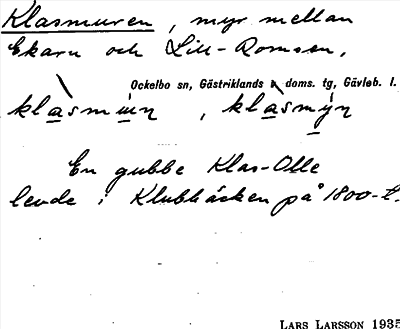 Klasmuren, myr mellan
Ekarn och Lill-Romsen,
Ockelbo sn, Gästriklands doms. tg, Gävleb. l.
klasmurn, klasmyn
En gubbe Klas-Olle
levde i Klubbäcken på 1800-t.
LARS LARSSON 1935